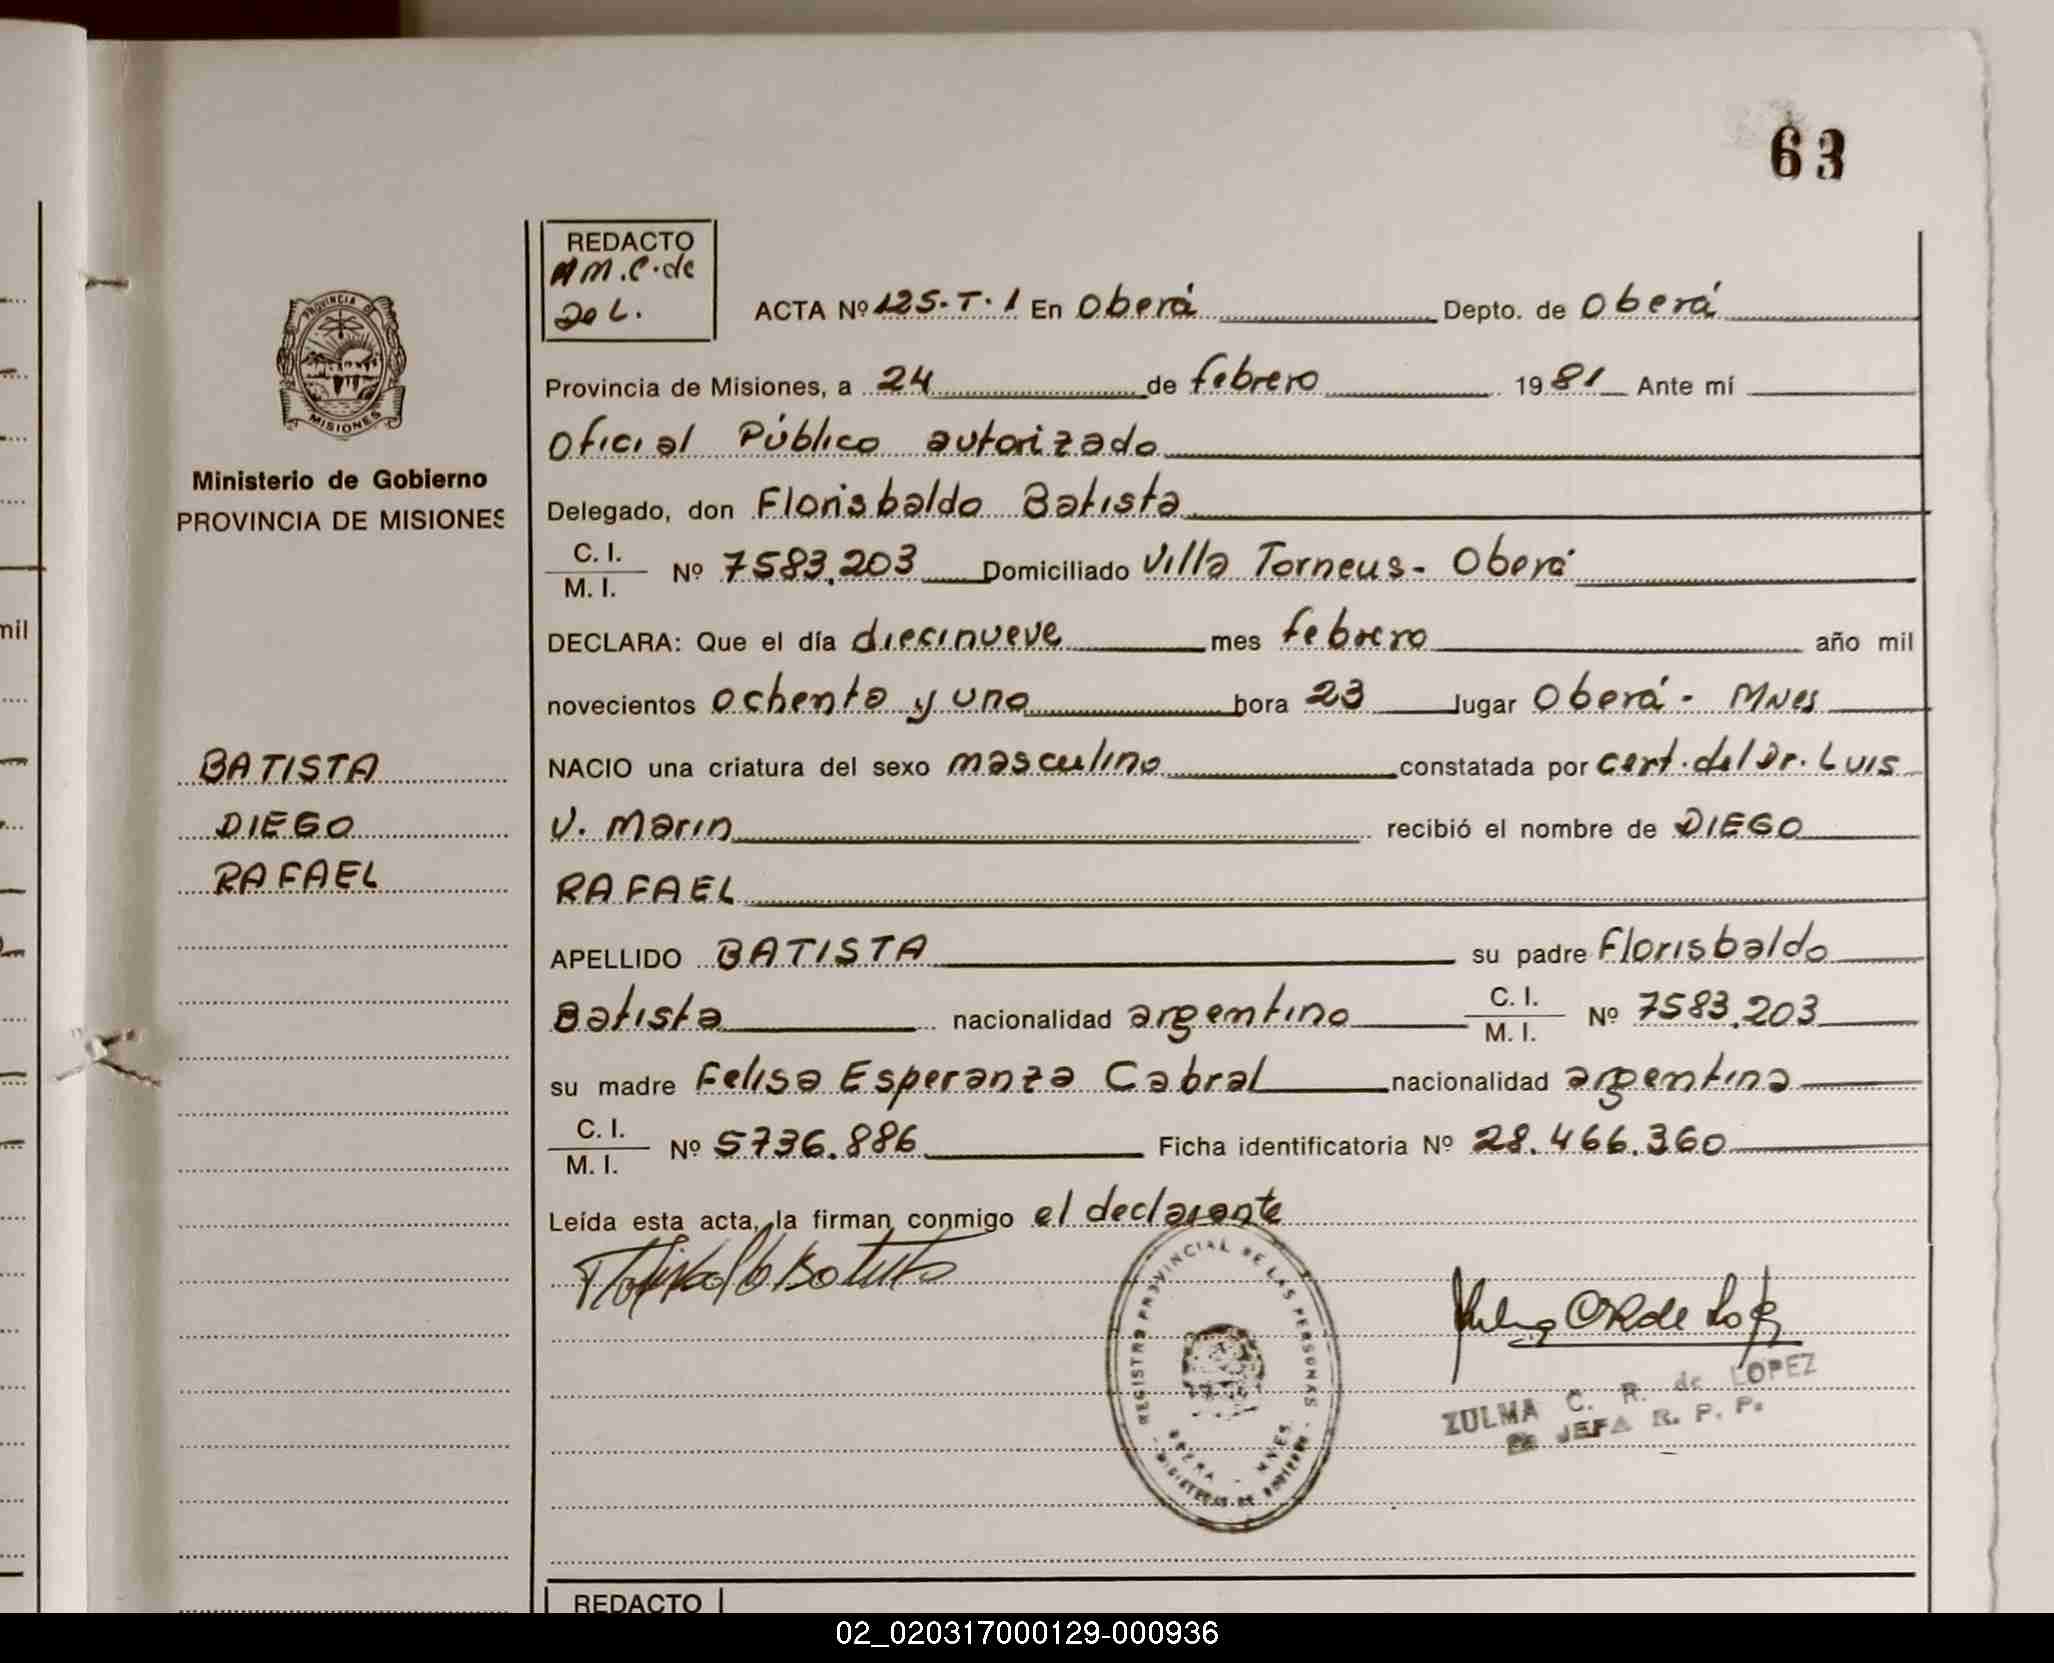 63
REDACTO
M.C. de
ACTA Nº 125-T-1 En Oberá Depto. de Oberá
Provincia de Misiones, a 24 de febrero 1981 Ante mí
Oficial Público autorizado
Delegado, don Florisbaldo Batista
C. I.
M. I. Nº 7583.203 Domiciliado Villa Torneus - Oberá
DECLARA: Que el día diecinueve mes febrero año mil
novecientos ochenta y uno hora 23 lugar Oberá - Mnes
NACIO una criatura del sexo masculino constatada por cert. del Dr. Luis
V. Marin recibió el nombre de DIEGO
RAFAEL
APELLIDO BATISTA su padre Florisbaldo
Batista nacionalidad argentino C. I. M. I. Nº 7583.203
su madre Felisa Esperanza Cabral nacionalidad argentina
C. I.
M. I. Nº 5736.886 Ficha identificatoria Nº 28.466.360
Leída esta acta, la firman conmigo el declarante
REGISTRO PROVINCIAL DE LAS PERSONAS
OBERA - MNES
MINISTERIO DE GOBIERNO
ZULMA C. R. de LOPEZ
JEFA R. P. P.
REDACTO
PROVINCIA DE
MISIONES
Ministerio de Gobierno
PROVINCIA DE MISIONES
BATISTA
DIEGO
RAFAEL
mil
02_020317000129-000936